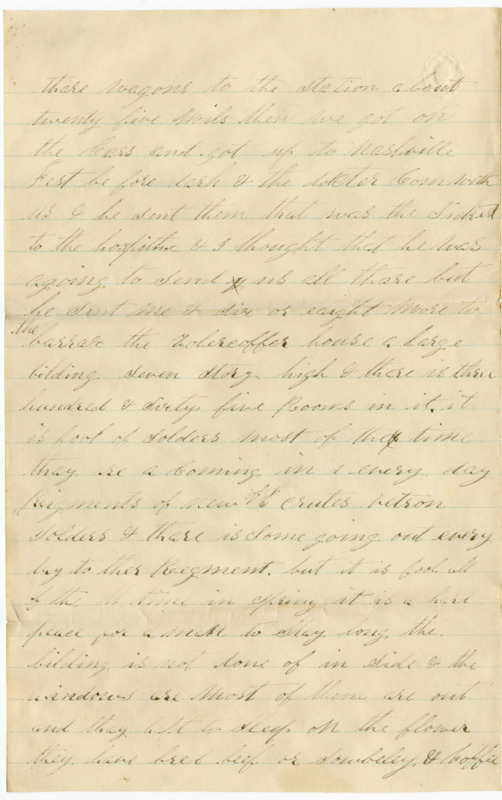 thare wagons to the station about
twenty five Mils then we got on
the Cars and got up to Nashville
Jest be fore dark & the dokter Com with
us & he sent them that was the Sickest
to the hospittle & I thought that he was
agoing to Send us all thare but
he sent me & six or eaight More to
the
barrax the Zolercoffer house a large
bilding Seven Story high & thare is three
hundred & Sixty five Rooms in it. it
is fool of Solders most of the time
thay are a Coming in every day
Reigments of new Re crutes vetron
Solders & thare is Some going out every
day to ther Raegment. but it is fool all
of the time in Spring it is a hard
peace for a man to Stay long the
bilding is not done of in Side & the
windows are Most of them are out
and thay haft to Sleep on the flower
they have bred beef or Sowbeley & Coffee